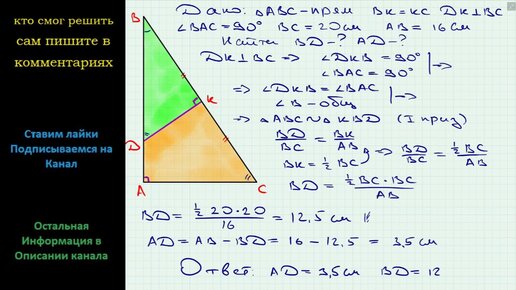 кто смог решить
сам пишите в
комментариях
Ставим лайки
Подписываемся на
Канал
Остальная
Информация в
Описании канала
B
K
D
A
C
Дано: △ABC-прям BK=KC DK⊥BC
∠BAC=90° BC=20см AB=16см
Найти BD-? AD-?
DK⊥BC => ∠DKB=90°
∠BAC=90°
=> ∠DKB=∠BAC
∠B-общ
=> △ABC∾△KBD (I приз)
BD/BC = BK/AB
BK=½BC => BD/BC = ½BC/AB
BD = ½BC·BC/AB
BD = ½20·20/16 = 12,5см
AD=AB-BD=16-12,5=3,5см
Ответ: AD=3,5см BD=12